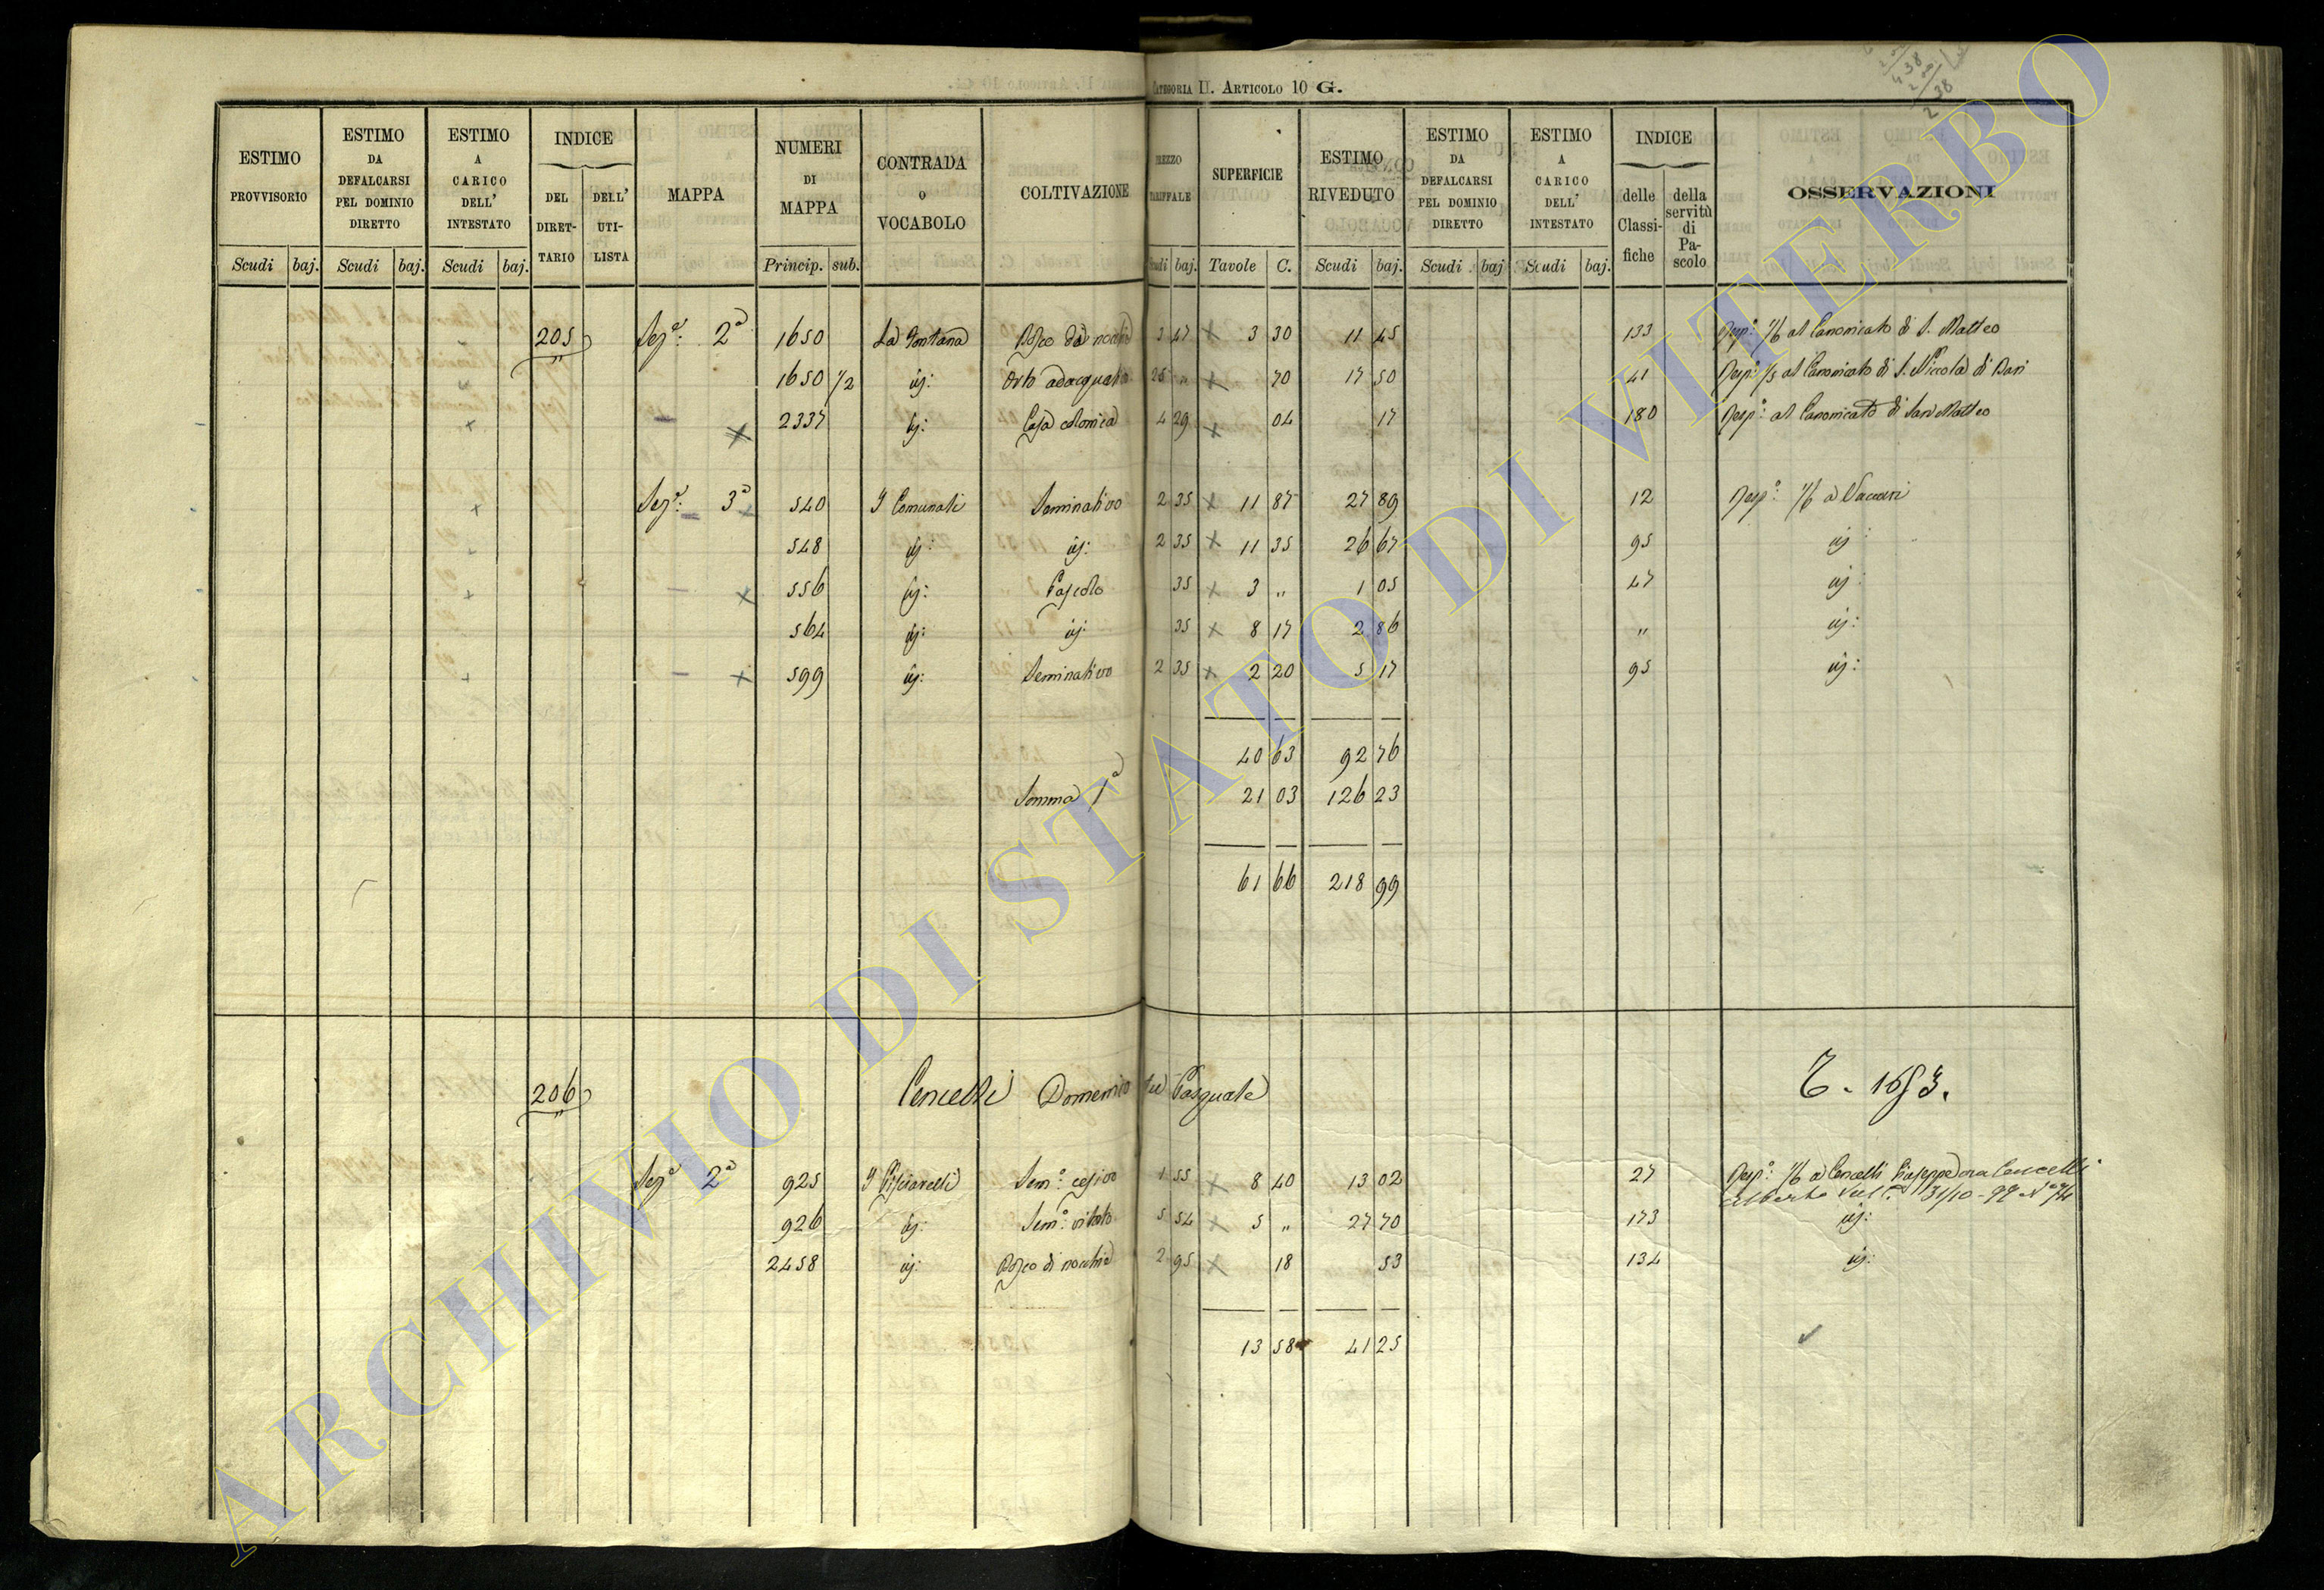 CATEGORIA II. ARTICOLO 10 G.
ESTIMO PROVVISORIO Scudi baj.
ESTIMO DA DEFALCARSI PEL DOMINIO DIRETTO Scudi baj.
ESTIMO A CARICO DELL' INTESTATO Scudi baj.
INDICE DEL DIRETTARIO DELL' UTILISTA
MAPPA
NUMERI DI MAPPA Princip. sub.
CONTRADA O VOCABOLO
COLTIVAZIONE
PREZZO TARIFFALE Scudi baj.
SUPERFICIE Tavole C.
ESTIMO RIVEDUTO Scudi baj.
ESTIMO DA DEFALCARSI PEL DOMINIO DIRETTO Scudi baj
ESTIMO A CARICO DELL' INTESTATO Scudi baj.
INDICE delle Classifiche della servitù di Pascolo
OSSERVAZIONI
205 Sez.e 2a 1650 La Fontana Bosco da nocchie 3 47 3 30 11 45 133 Resp.o 1/6 al Canonicato di S. Matteo
1650 1/2 id: Orto adacquato 25 „ 70 17 50 41 Resp.o 1/5 al Canonicato di S. Niccola di Bari
2337 id: Casa colonica 4 29 04 17 180 Resp.o al Canonicato di San Matteo
Sez.e 3a 540 I Comunali Seminativo 2 35 11 87 27 89 12 Resp.o 1/6 a Vaccari
548 id: id: 2 35 11 35 26 67 95 id
556 id: Pascolo 35 3 „ 1 05 47 id:
564 id: id: 35 8 17 2 86 „ id:
599 id: Seminativo 2 35 2 20 5 17 95 id:
40 63 92 76
Somma 1a 21 03 126 23
61 66 218 99
206 Cencelli Domenico fu Pasquale
Sez.e 2a 925 I Pisciarelli Sem.o cesivo 1 55 8 40 13 02 27 Resp.o 1/6 a Cencelli Giuseppe ora Cencelli
Alberto 31/10-99 N 74
926 id: Sem.o vitato 5 54 5 „ 27 70 173 id:
2458 id: Bosco di nocchie 2 95 18 53 134 id:
13 58 41 25